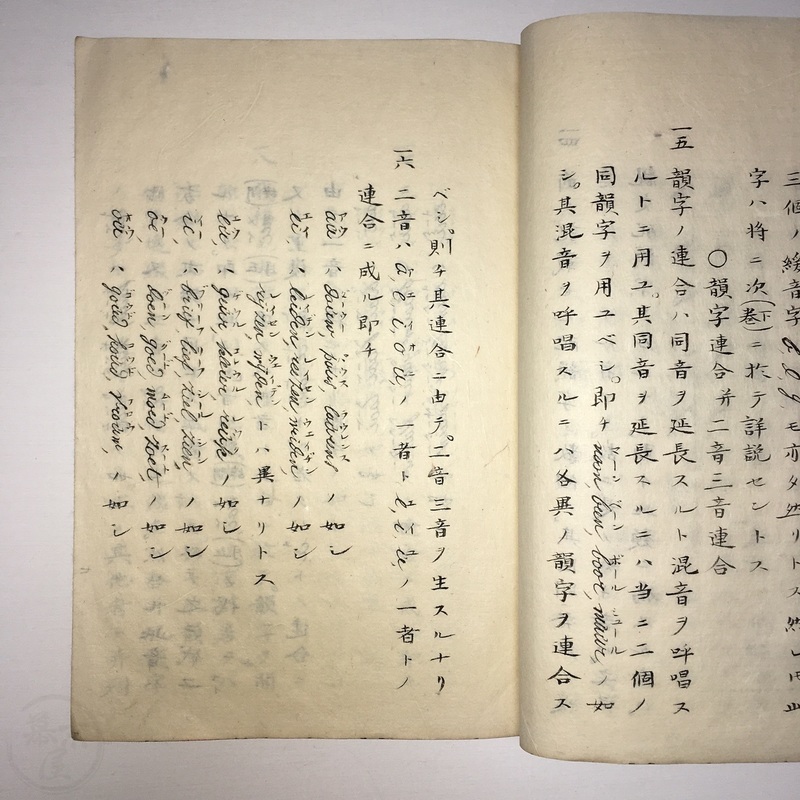 三個ノ緩音字 d, l, g モ亦タ然リトス然レ𪜈此
字ハ将ニ次(巻下)ニ於テ詳説セントス
〇韻字連合并二音三音連合
一五 韻字ノ連合ハ同音ヲ延長スルト混音ヲ呼唱ス
ルトニ用ユ。其同音ヲ延長スルニハ当ニ二個ノ
同韻字ヲ用ユベシ。即チ naam, been, boor, ノ如
シ。其混音ヲ呼唱スルニハ各異ノ韻字ヲ連合ス
ベシ。則チ其連合ニ由テ。二音三音ヲ生スルナリ
一六 二音ハ a, e, i, o, u, ノ一者ト e, i, u, ノ一者トノ
連合ニ成ル即チ
ノ如シ
ei, ハ leiden, reizen, ノ如シ
トハ異ナリトス
ノ如シ
ie, ハ brief, lief, ziel, zien, ノ如シ
oe, ハ boen, goed, moed, zoet, ノ如シ
ou, ハ goud, houd, vrouw, ノ如シ